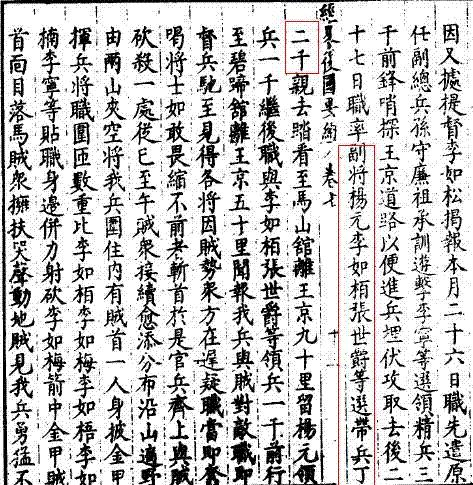 因又據提督李如松揭報本月二十六日職先遣原
任副總兵孫守廉祖承訓遊擊李寧等選領精兵三
千前鋒哨探王京道路以便進兵埋伏攻取去後二
十七日職率副將楊元李如栢張世爵等選帶兵丁
經畧後國要編 卷七
二千親去踏看至馬山舘離王京九十里留楊元領
兵一千繼後職與李如栢張世爵等領兵一千前行
至碧蹄舘離王京五十里聞報我兵與賊對敵職即
督兵馳至見得各將因賊勢衆方在遲疑職當即奮
喝將士如敢畏縮不前者斬首於是官兵齊上與賊
砍殺一處後巳至午賊衆接續愈添分布沿山遍野
由兩山夾空將我兵圍住內有賊首一人身披金甲
揮兵將職圍匝數重比李如栢李如梅李如梧李如
楠李寧等貼職身邊併力射砍李如梅箭中金甲賊
首面目落馬賊衆擁扶哭聲動地賊見我兵勇猛不